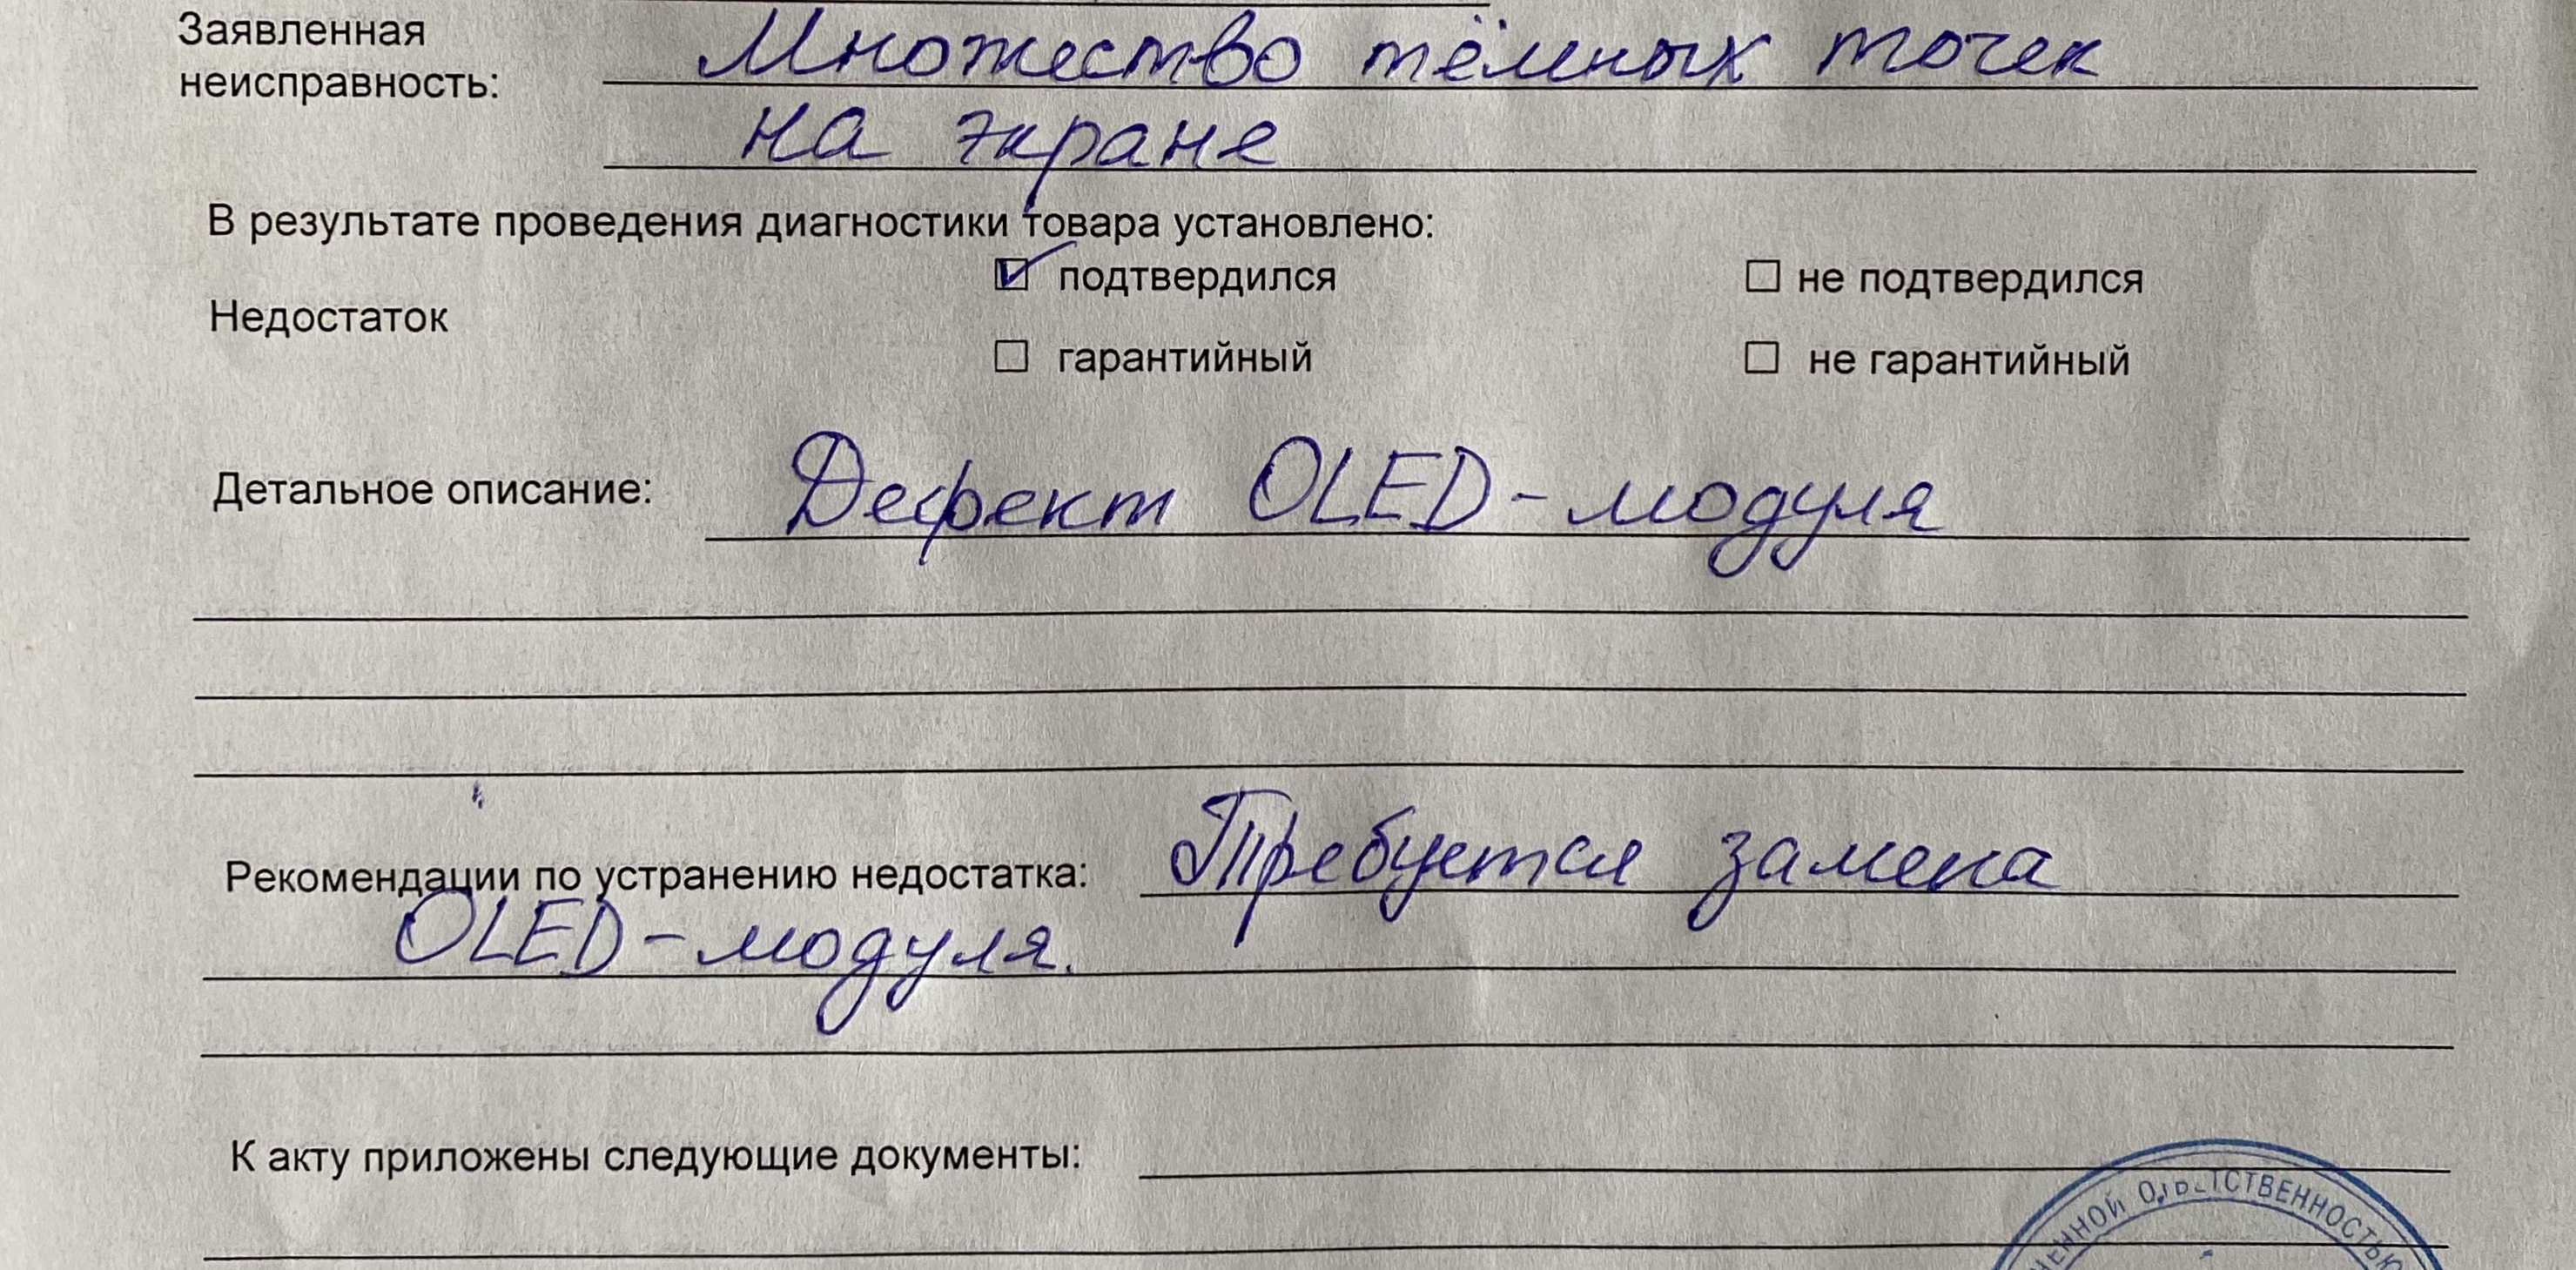 Заявленная
неисправность: Множество тёмных точек
на экране
В результате проведения диагностики товара установлено:
подтвердился не подтвердился
Недостаток
гарантийный не гарантийный
Детальное описание: Дефект OLED-модуля
Рекомендации по устранению недостатка: Требуется замена
OLED-модуля.
К акту приложены следующие документы:
ОТВЕТСТВЕННОСТЬЮ